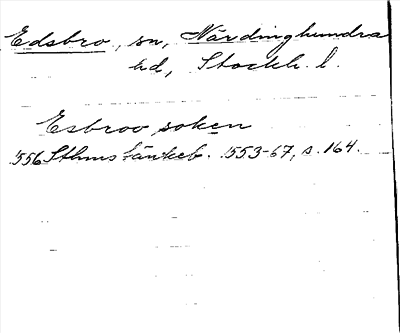 Edsbro, sn, Närdinghundra
hd, Stockh. l.
Esbroo soken
556 Sthms tänkeb. 553-67, s. 164.